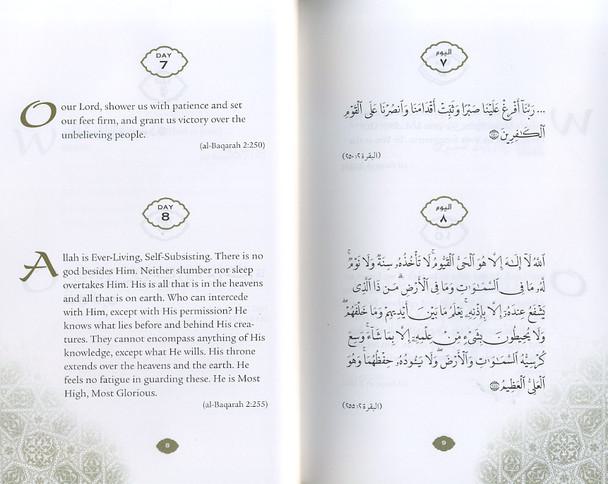 DAY
7
O our Lord, shower us with patience and set
our feet firm, and grant us victory over the
unbelieving people.
(al-Baqarah 2:250)
DAY
8
Allah is Ever-Living, Self-Subsisting. There is no
god besides Him. Neither slumber nor sleep
overtakes Him. His is all that is in the heavens
and all that is on earth. Who can intercede
with Him, except with His permission? He
knows what lies before and behind His crea-
tures. They cannot encompass anything of His
knowledge, except what He wills. His throne
extends over the heavens and the earth. He
feels no fatigue in guarding these. He is Most
High, Most Glorious.
(al-Baqarah 2:255)
8
اليوم
٧
... رَبَّنَآ أَفْرِغْ عَلَيْنَا صَبْرًا وَثَبِّتْ أَقْدَامَنَا وَٱنصُرْنَا عَلَى ٱلْقَوْمِ
ٱلْكَٰفِرِينَ ۝
(البقرة ٢: ٢٥٠)
اليوم
٨
ٱللَّهُ لَآ إِلَٰهَ إِلَّا هُوَ ٱلْحَىُّ ٱلْقَيُّومُ ۚ لَا تَأْخُذُهُۥ سِنَةٌ وَلَا نَوْمٌ ۚ
لَّهُۥ مَا فِى ٱلسَّمَٰوَٰتِ وَمَا فِى ٱلْأَرْضِ ۗ مَن ذَا ٱلَّذِى
يَشْفَعُ عِندَهُۥٓ إِلَّا بِإِذْنِهِۦ ۚ يَعْلَمُ مَا بَيْنَ أَيْدِيهِمْ وَمَا خَلْفَهُمْ ۖ
وَلَا يُحِيطُونَ بِشَىْءٍ مِّنْ عِلْمِهِۦٓ إِلَّا بِمَا شَآءَ ۚ وَسِعَ
كُرْسِيُّهُ ٱلسَّمَٰوَٰتِ وَٱلْأَرْضَ ۖ وَلَا يَـُٔودُهُۥ حِفْظُهُمَا ۚ وَهُوَ
ٱلْعَلِىُّ ٱلْعَظِيمُ ۝
(البقرة ٢: ٢٥٥)
9